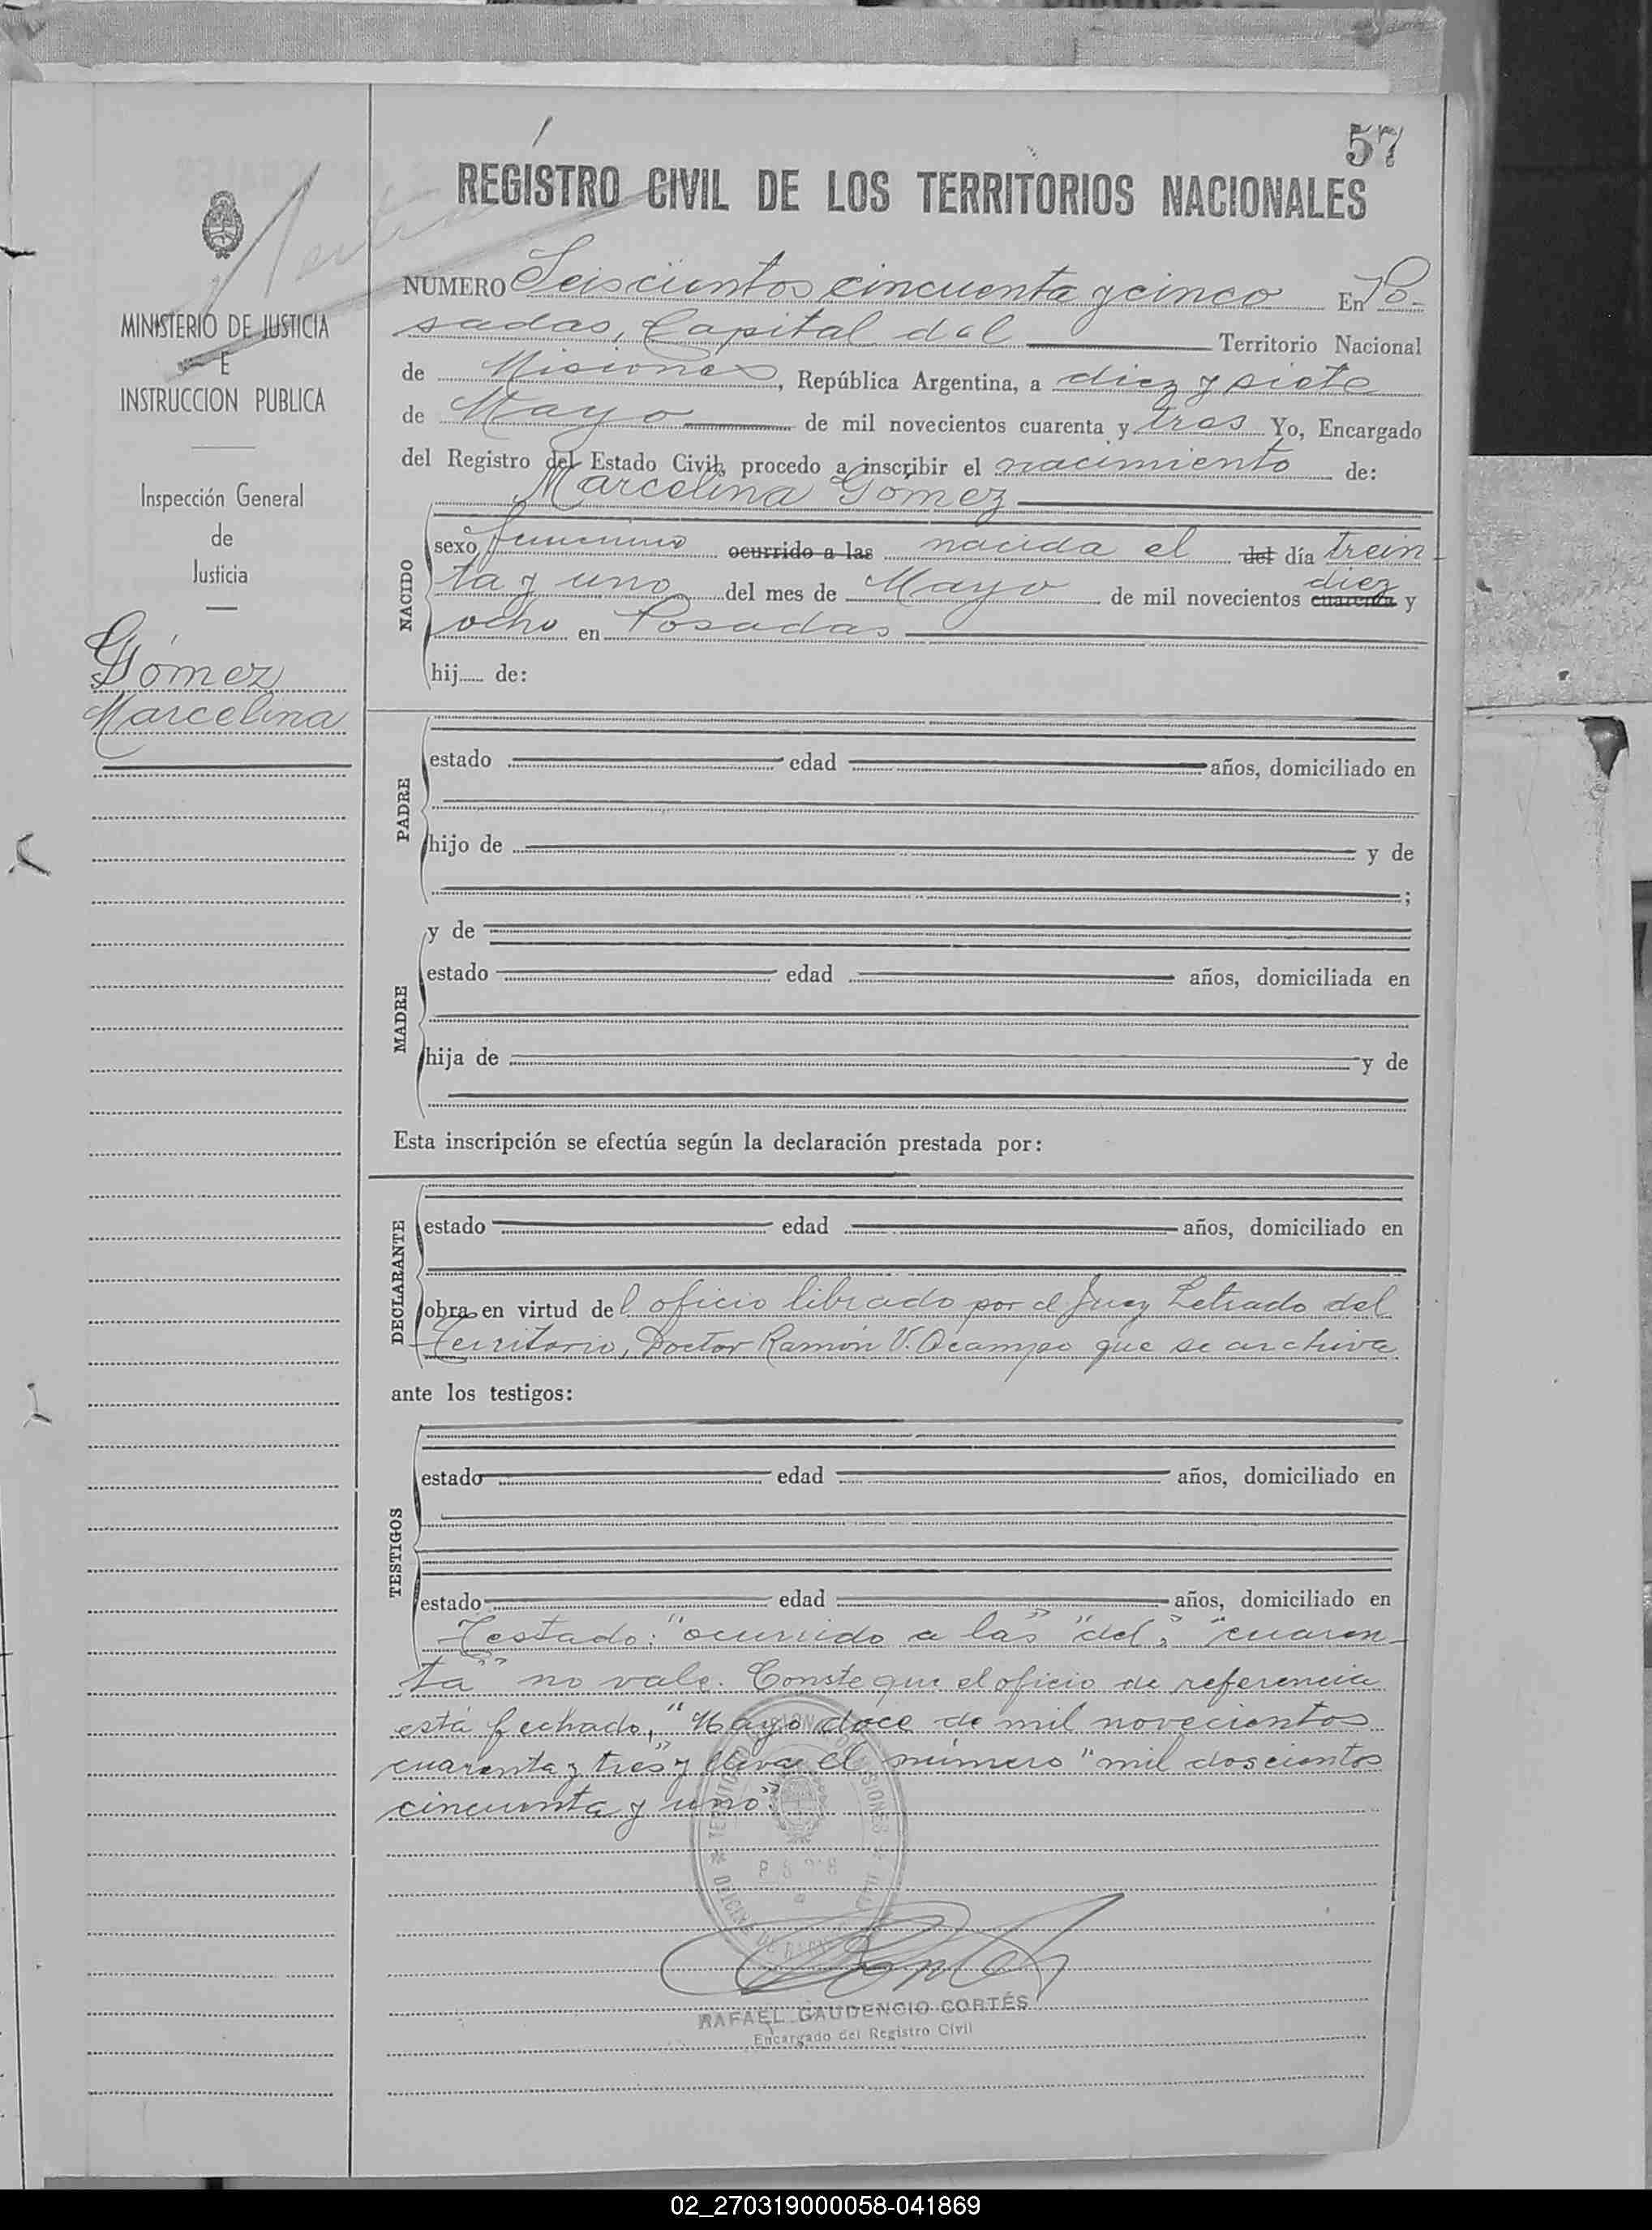 57
REGISTRO CIVIL DE LOS TERRITORIOS NACIONALES
MINISTERIO DE JUSTICIA
E
INSTRUCCION PUBLICA
Inspección General
de
Justicia
Gómez
Marcelina
NUMERO Seiscientos cincuenta y cinco En Po-
sadas, Capital del Territorio Nacional
de Misiones, República Argentina, a diez y siete
de Mayo de mil novecientos cuarenta y tres Yo, Encargado
del Registro del Estado Civil, procedo a inscribir el nacimiento de:
Marcelina Gómez
NACIDO
sexo femenino ocurrido a las nacida el del día trein-
diez
ta y uno del mes de Mayo de mil novecientos cuarenta y
ocho en Posadas
hij..... de:
PADRE
estado edad años, domiciliado en
hijo de y de
;
MADRE
y de
estado edad años, domiciliada en
hija de y de
Esta inscripción se efectúa según la declaración prestada por:
DECLARANTE
estado edad años, domiciliado en
obra en virtud del oficio librado por el Juez Letrado del
Territorio, Doctor Ramón V. Ocampo que se archiva
ante los testigos:
TESTIGOS
estado edad años, domiciliado en
estado edad años, domiciliado en
Testado: "ocurrido a las" "del", "cuaren-
ta" no vale. Conste que el oficio de referencia
está fechado, "Mayo doce de mil novecientos
cuarenta y tres" y lleva el número "mil doscientos
cincuenta y uno".
RAFAEL GAUDENCIO CORTÉS
Encargado del Registro Civil
02_270319000058-041869